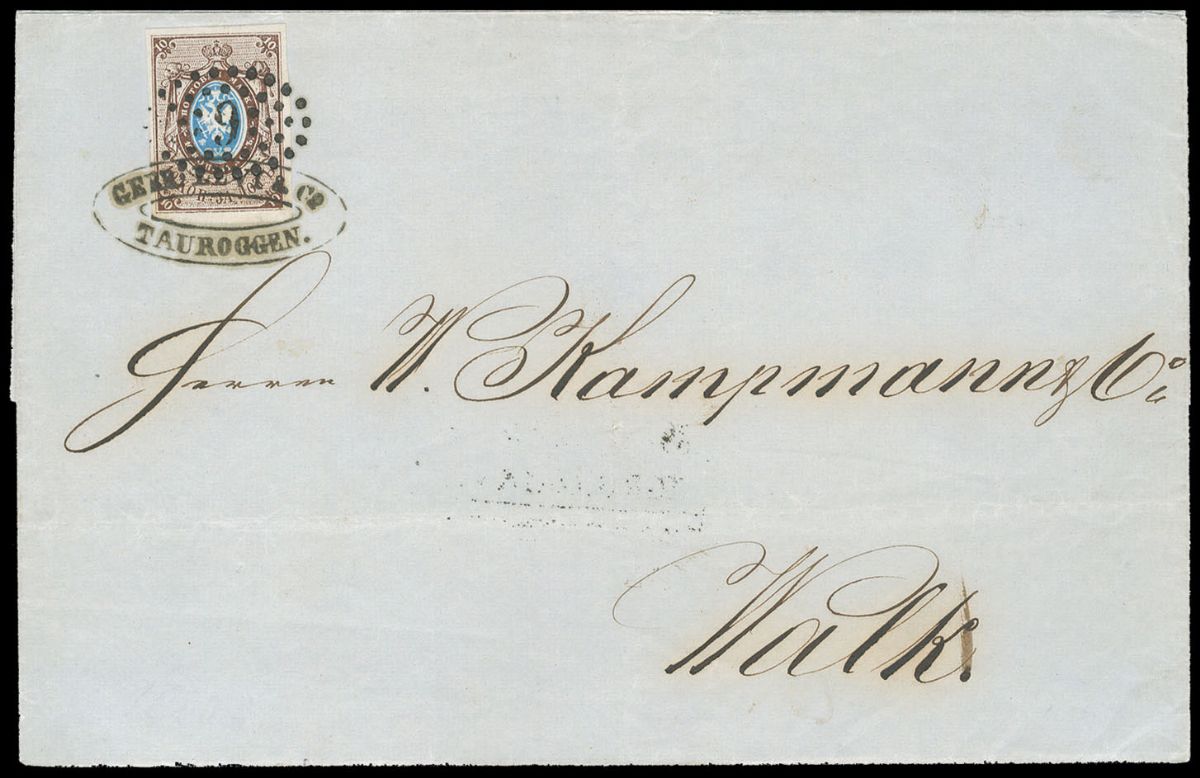 10 10
9
GEBR. LEVY & Cº
TAUROGGEN.
Herren W. Kampmann & Co.
Walk.